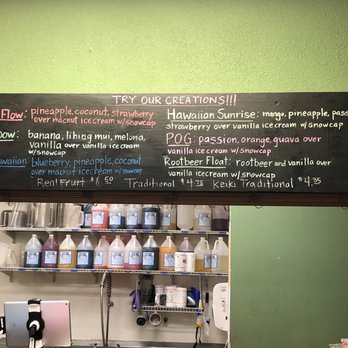 TRY OUR CREATIONS!!!
Flow: pineapple, coconut, strawberry
over macnut ice cream w/snowcap
bow: banana, li hing mui, melona,
vanilla over vanilla ice cream
w/snowcap
waiian: blueberry, pineapple, coconut
over macnut ice cream w/snowcap
Hawaiian Sunrise: mango, pineapple, pass
strawberry over vanilla ice cream w/snowcap
POG: passion, orange, guava over
vanilla ice cream w/snowcap
Rootbeer Float: rootbeer and vanilla over
vanilla ice cream w/snowcap
Real Fruit Traditional $4.75 Keiki Traditional $4.35